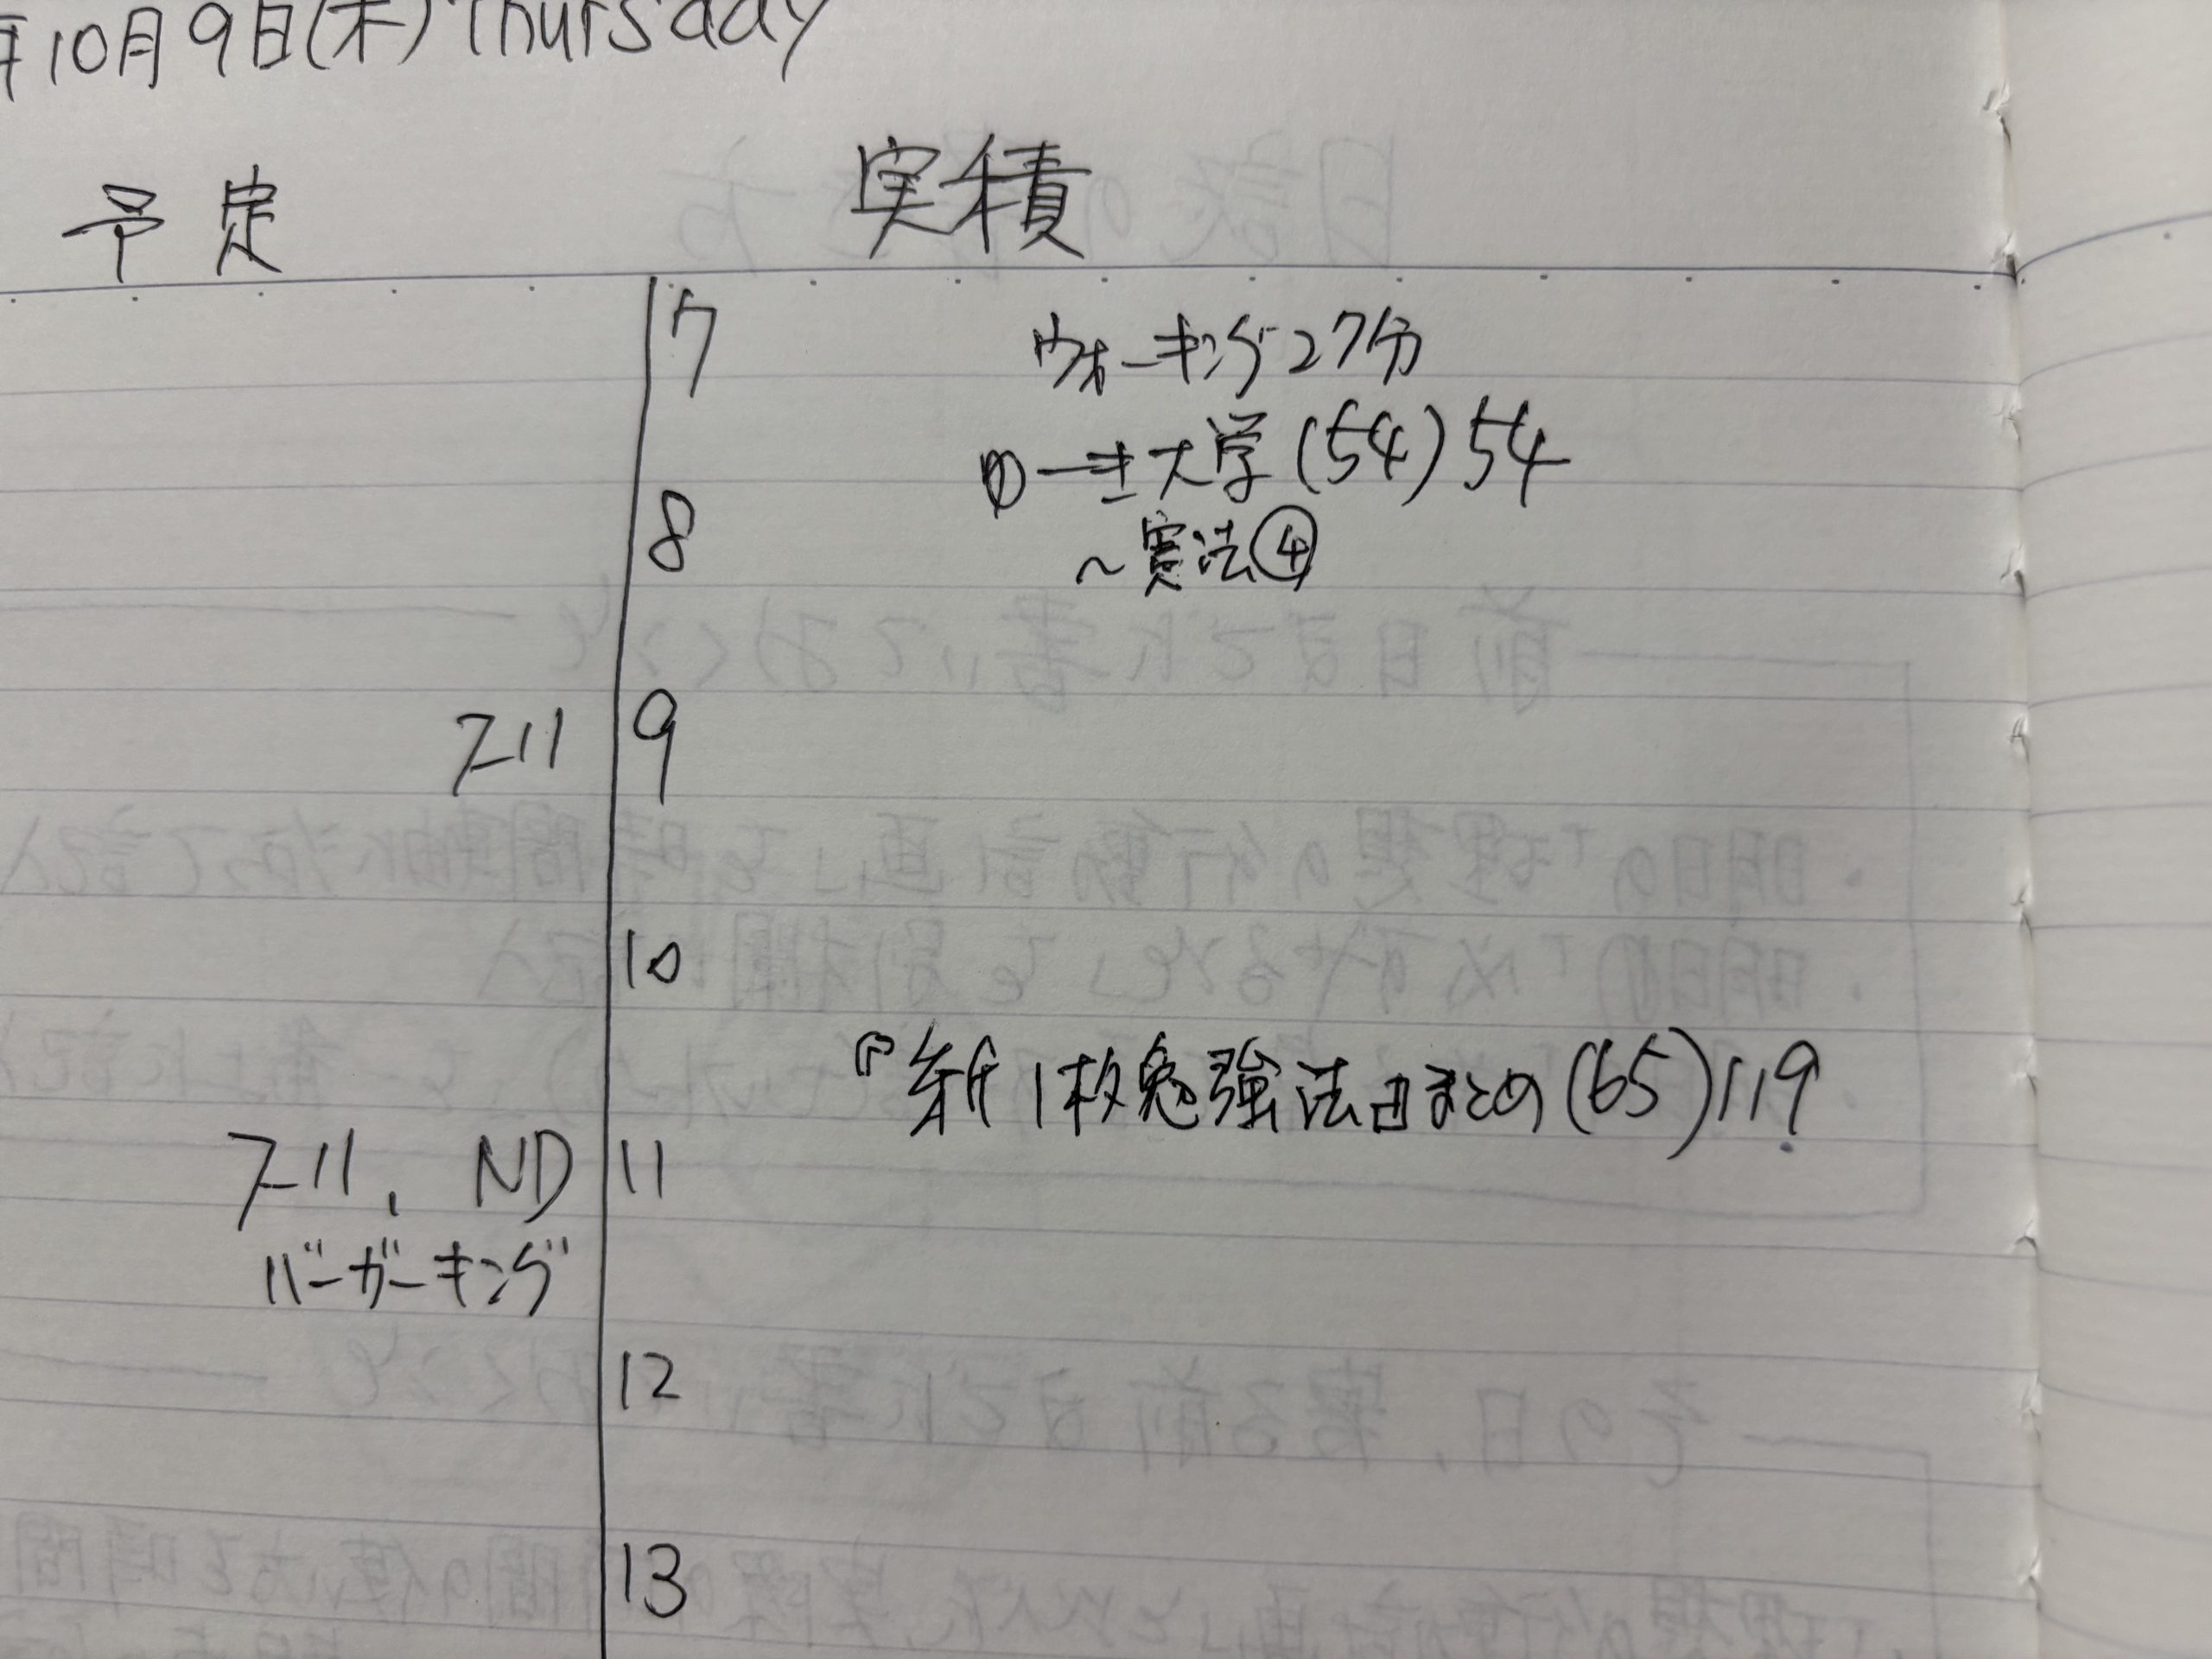 年10月9日(木) Thursday
予定
実積
7
ウォーキング27分
ゆーき大学(54)54
8
～憲法④
フ-11
9
10
『新1枚勉強法』まとめ(65)119
フ-11、ND
11
バーガーキング
12
13